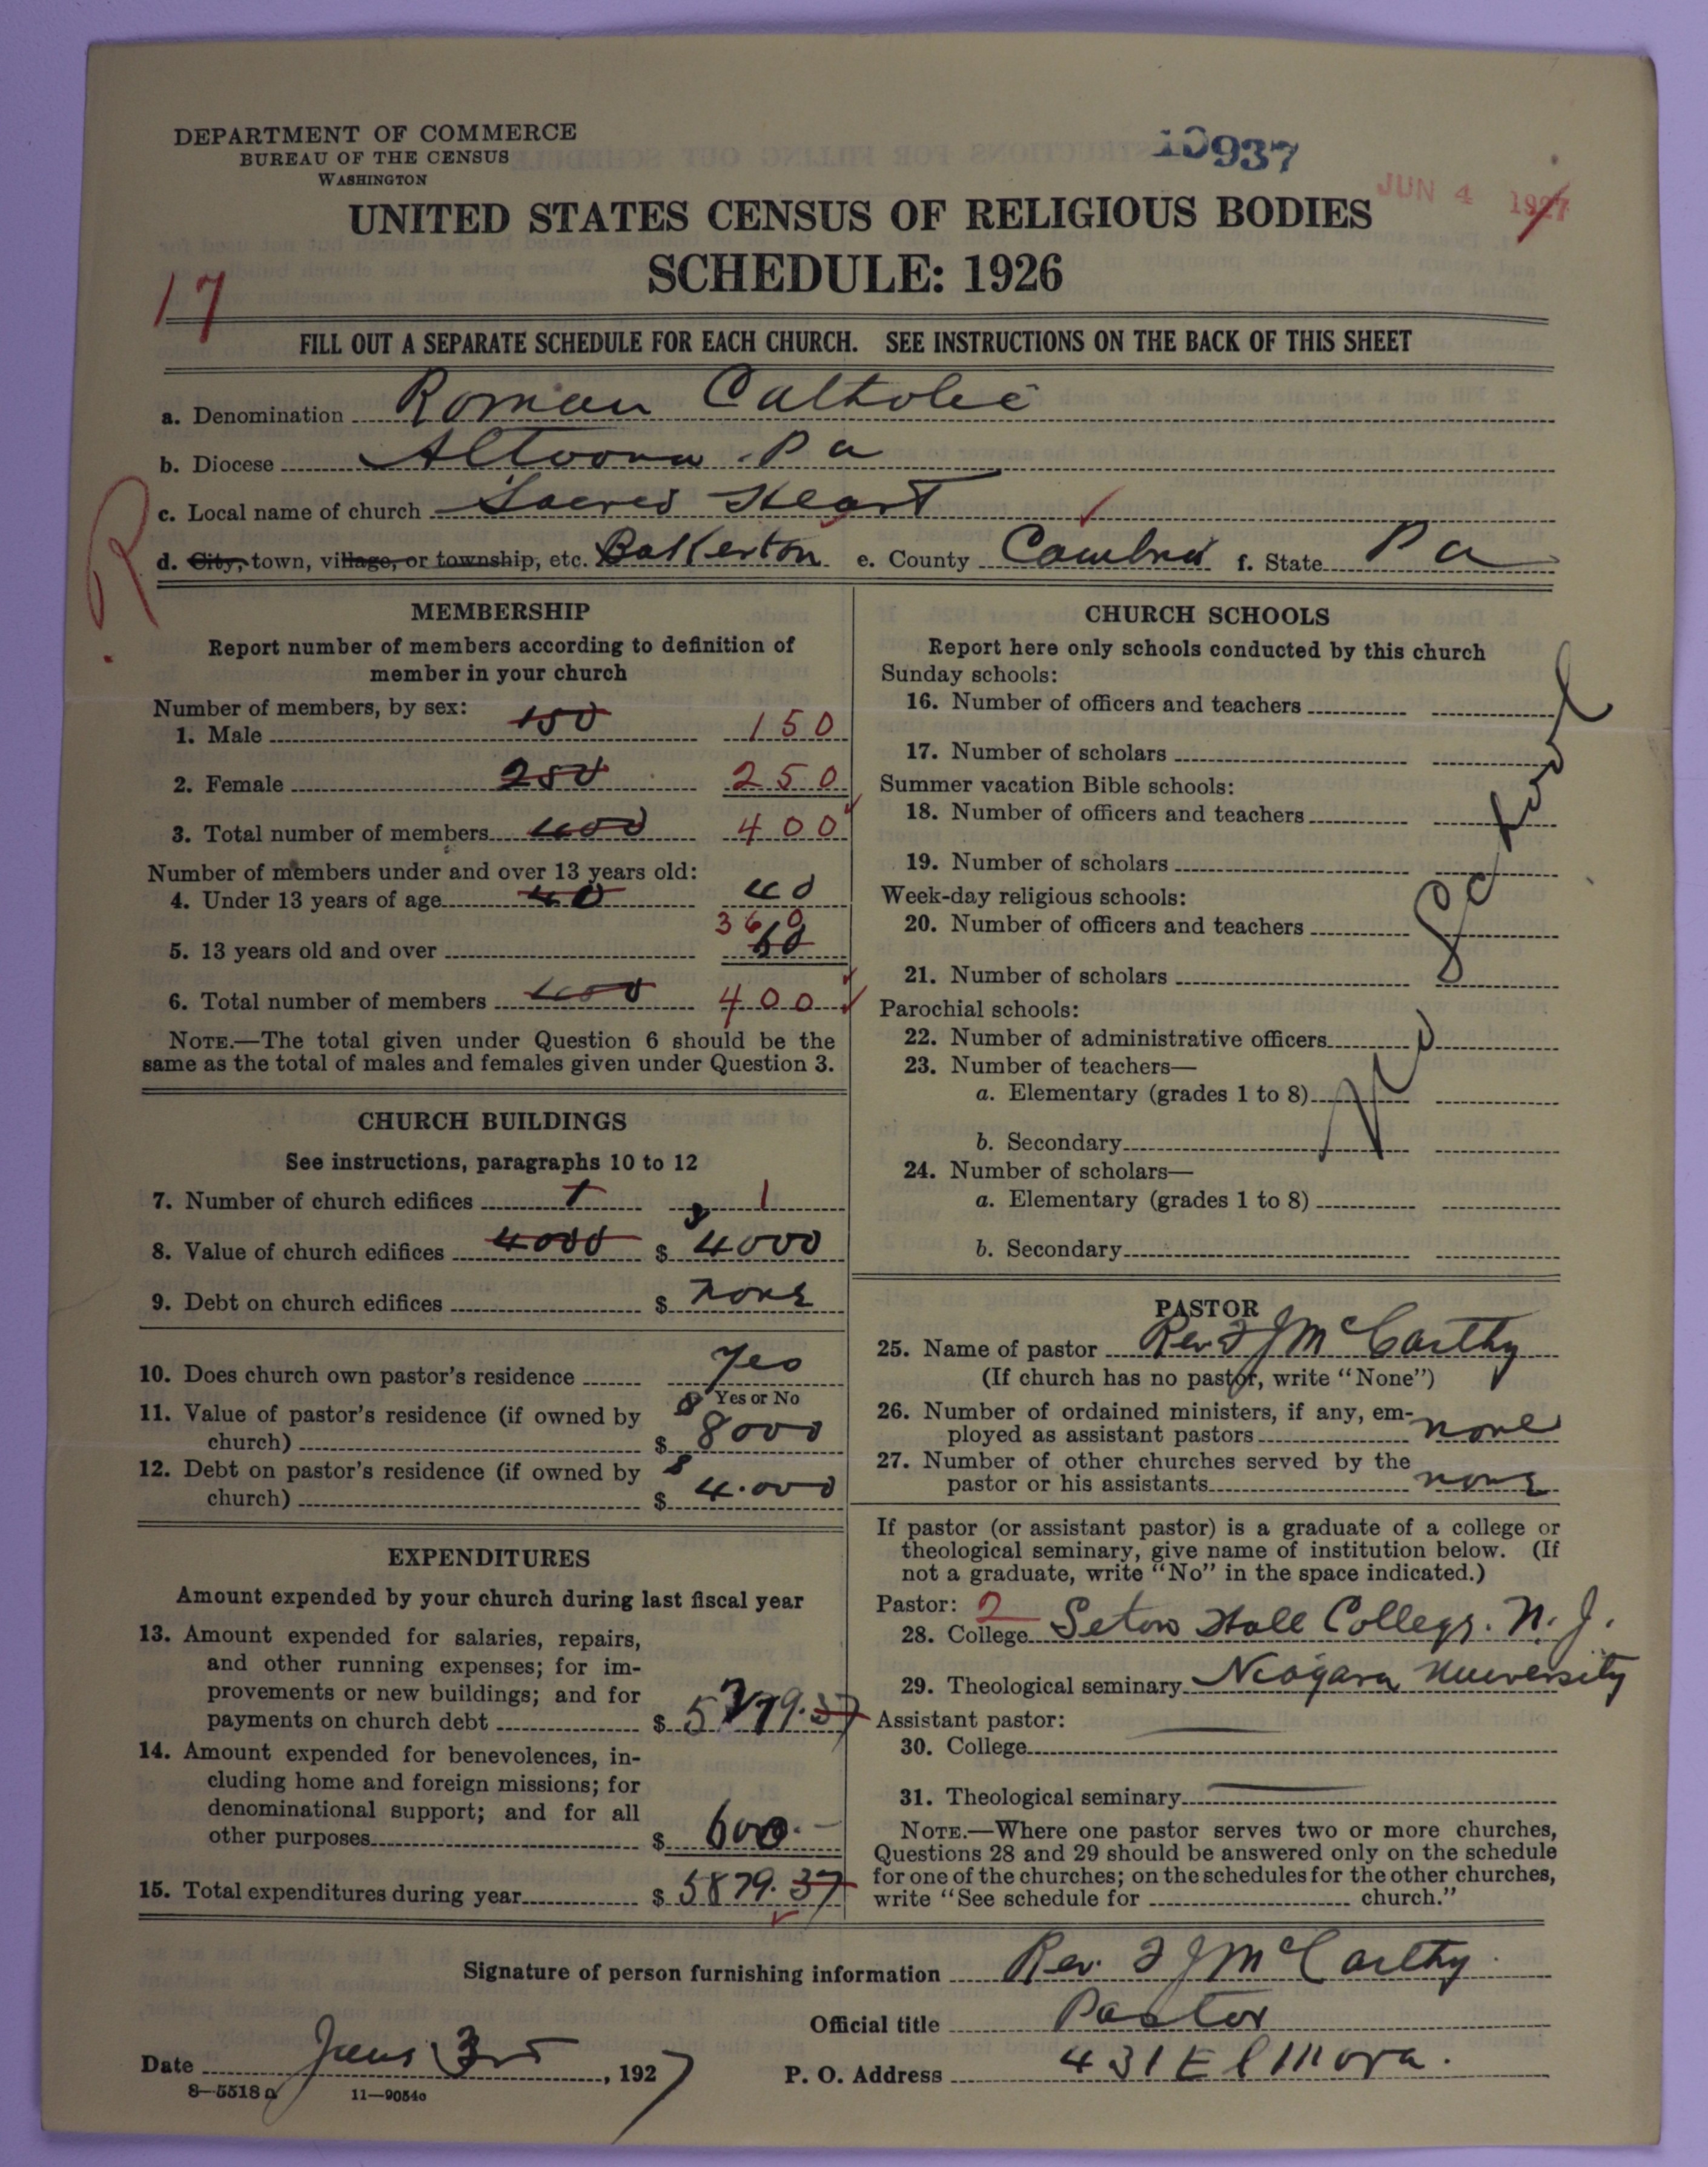 DEPARTMENT OF COMMERCE
BUREAU OF THE CENSUS
WASHINGTON
10937
JUN 4 1927
UNITED STATES CENSUS OF RELIGIOUS BODIES
SCHEDULE: 1926
17
FILL OUT A SEPARATE SCHEDULE FOR EACH CHURCH. SEE INSTRUCTIONS ON THE BACK OF THIS SHEET
a. Denomination Roman Catholic
b. Diocese Altoona. Pa
c. Local name of church Sacred Heart
R
d. City, town, village, or township, etc. Bakerton e. County Cambria f. State Pa
MEMBERSHIP
Report number of members according to definition of
member in your church
Number of members, by sex:
1. Male 150 150
2. Female 250 250
3. Total number of members 400 400
Number of members under and over 13 years old:
4. Under 13 years of age 40 40
360
5. 13 years old and over 60
6. Total number of members 400 400
NOTE.—The total given under Question 6 should be the
same as the total of males and females given under Question 3.
CHURCH BUILDINGS
See instructions, paragraphs 10 to 12
7. Number of church edifices 1 1
8. Value of church edifices 4000 $ 4000
9. Debt on church edifices $ none
10. Does church own pastor's residence Yes
Yes or No
11. Value of pastor's residence (if owned by
church) $ 8000
12. Debt on pastor's residence (if owned by
church) $ 4.000
EXPENDITURES
Amount expended by your church during last fiscal year
13. Amount expended for salaries, repairs,
and other running expenses; for im-
provements or new buildings; and for
payments on church debt $ 5279.37
14. Amount expended for benevolences, in-
cluding home and foreign missions; for
denominational support; and for all
other purposes $ 600.—
15. Total expenditures during year $ 5879.37
CHURCH SCHOOLS
Report here only schools conducted by this church
Sunday schools:
16. Number of officers and teachers
17. Number of scholars
Summer vacation Bible schools:
18. Number of officers and teachers
19. Number of scholars
Week-day religious schools:
20. Number of officers and teachers
21. Number of scholars
Parochial schools:
22. Number of administrative officers
23. Number of teachers—
a. Elementary (grades 1 to 8)
b. Secondary
24. Number of scholars—
a. Elementary (grades 1 to 8)
b. Secondary
No School
PASTOR
25. Name of pastor Rev F J McCarthy
(If church has no pastor, write "None")
26. Number of ordained ministers, if any, em-
ployed as assistant pastors none
27. Number of other churches served by the
pastor or his assistants none
If pastor (or assistant pastor) is a graduate of a college or
theological seminary, give name of institution below. (If
not a graduate, write "No" in the space indicated.)
Pastor: 2
28. College Seton Hall College. N. J.
29. Theological seminary Niagara University
Assistant pastor:
30. College
31. Theological seminary
NOTE.—Where one pastor serves two or more churches,
Questions 28 and 29 should be answered only on the schedule
for one of the churches; on the schedules for the other churches,
write "See schedule for church."
Signature of person furnishing information Rev. F J McCarthy
Official title Pastor
Date June 3rd, 1927
P. O. Address 431 Elmora.
8—5518a 11—9054a